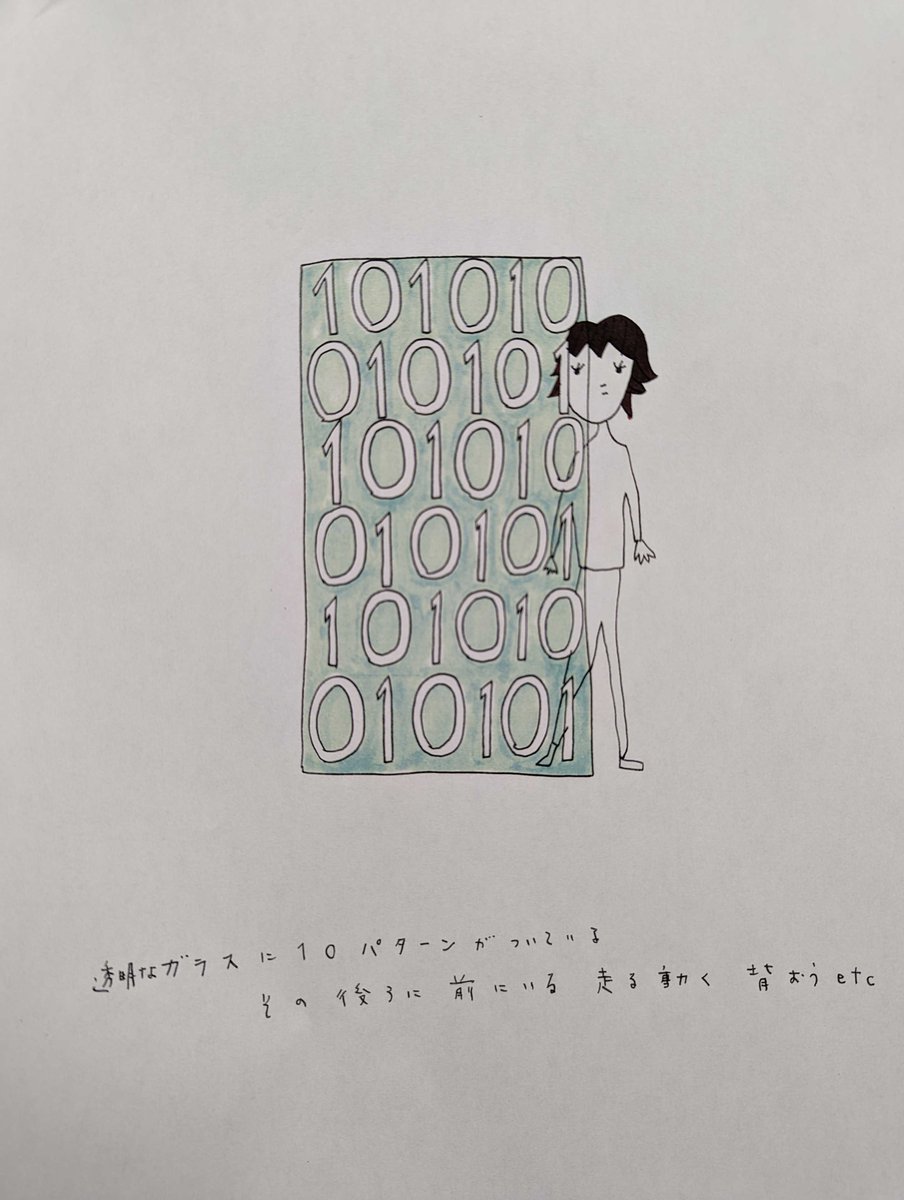 101010
010101
101010
010101
101010
010101
透明なガラスに10パターンがついている
その後ろに前にいる 走る動く 背おうetc